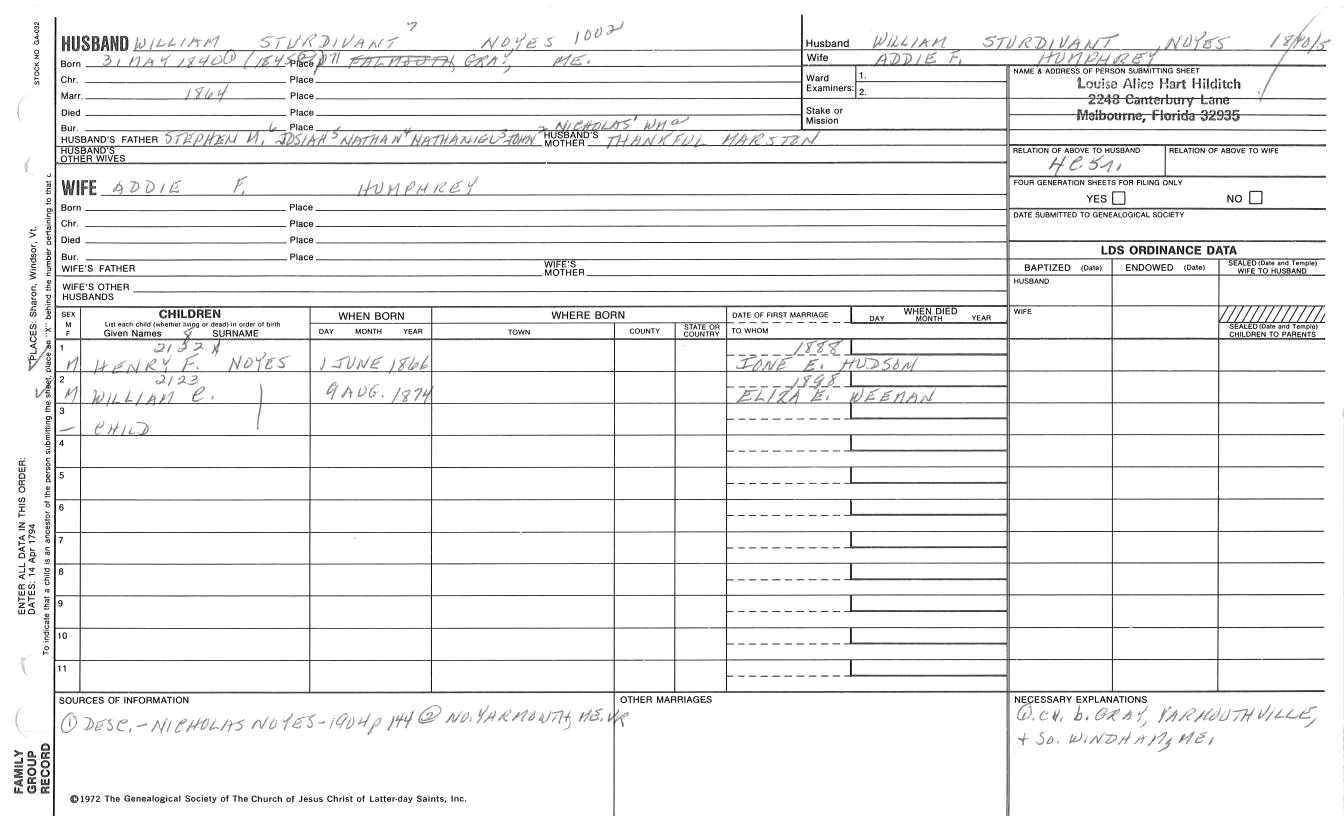 STOCK NO. GA-032
HUSBAND WILLIAM STURDIVANT 7 NOYES 1002
Born 31 MAY 1840① Place FALMOUTH, GRAY, ME.
Chr. Place
Marr. 1864 Place
Died Place
Bur. Place
HUSBAND'S FATHER STEPHEN M. 6 JOSIAH 5 NATHAN 4 NATHANIEL 3 JOHN 2 NICHOLAS' WMa
HUSBAND'S MOTHER THANKFUL MARSTON
HUSBAND'S OTHER WIVES
Husband WILLIAM STURDIVANT NOYES 1840/5
Wife ADDIE F. HUMPHREY
Ward Examiners: 1.
2.
Stake or Mission
NAME & ADDRESS OF PERSON SUBMITTING SHEET
Louise Alice Hart Hilditch
2248 Canterbury Lane
Melbourne, Florida 32935
RELATION OF ABOVE TO HUSBAND RELATION OF ABOVE TO WIFE
FOUR GENERATION SHEETS FOR FILING ONLY
YES NO
DATE SUBMITTED TO GENEALOGICAL SOCIETY
WIFE ADDIE F. HUMPHREY
Born Place
Chr. Place
Died Place
Bur. Place
WIFE'S FATHER WIFE'S MOTHER
WIFE'S OTHER HUSBANDS
LDS ORDINANCE DATA
BAPTIZED (Date) ENDOWED (Date) SEALED (Date and Temple) WIFE TO HUSBAND
HUSBAND
WIFE
SEALED (Date and Temple) CHILDREN TO PARENTS
SEX M F
CHILDREN
List each child (whether living or dead) in order of birth
Given Names 8 SURNAME
WHEN BORN
DAY MONTH YEAR
WHERE BORN
TOWN COUNTY STATE OR COUNTRY
DATE OF FIRST MARRIAGE
TO WHOM
WHEN DIED
DAY MONTH YEAR
1 2132 X 1888
M HENRY F. NOYES 1 JUNE 1866 IONE E. HUDSON
2 2123 1898
M WILLIAM C. 9 AUG. 1874 ELIZA E. WEEMAN
3
– CHILD
4
5
6
7
8
9
10
11
SOURCES OF INFORMATION
① DESC.-NICHOLAS NOYES-1904 p 144 ② NO. YARMOUTH, ME. VR
OTHER MARRIAGES
NECESSARY EXPLANATIONS
①. CH. b. GRAY, YARMOUTHVILLE,
+ SO. WINDHAM, ME.
©1972 The Genealogical Society of The Church of Jesus Christ of Latter-day Saints, Inc.
PLACES: Sharon, Windsor, Vt.
ENTER ALL DATA IN THIS ORDER:
DATES: 14 Apr 1794
To indicate that a child is an ancestor of the person submitting the sheet, place an "X" behind the number pertaining to that c
FAMILY
GROUP
RECORD